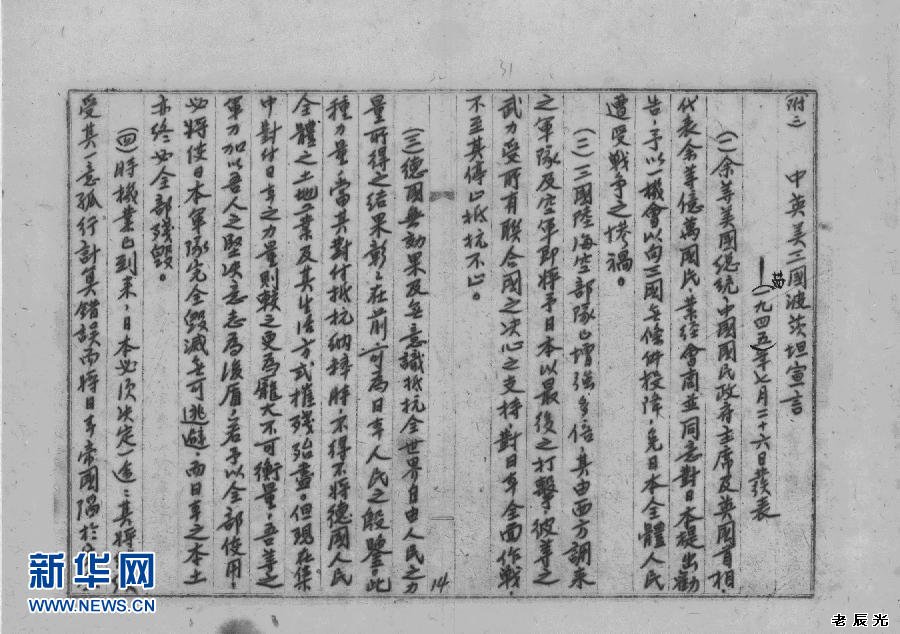 附二　中英美三國波茨坦宣言
(一九四五年七月二十六日發表
(一)余等美國總統、中國國民政府主席及英國首相、
代表余等億萬國民業經會商並同意對日本提出勸
告、予以一機會以向三國無條件投降、免日本全體人民
遭受戰爭之慘禍。
(二)三國陸海空部隊已增強多倍，其由西方調來
之軍隊及空軍即將予日本以最後之打擊，彼等之
武力受所有聯合國之决心之支持對日本全面作戰，
不至其停止抵抗不止。
(三)德國無効果及無意識抵抗全世界自由人民之力
量所得之結果彰彰在前，可為日本人民之殷鑒此
種力量，當其對付抵抗納粹時，不得不將德國人民
全體之土地工業及其生活方式摧殘殆盡。但現在集
中對付日本之力量則較之更為龐大不可衡量，吾等之
軍力加以吾人之堅决意志為後盾，若予以全部使用，
必將使日本軍隊完全毀滅無可逃避，而日本之本土
亦終必全部殘毀。
(四)時機業已到來，日本必須决定一途：其將
受其一意孤行計算錯誤而將日本帝國陷於
14
31
新华网
WWW.NEWS.CN
老辰光